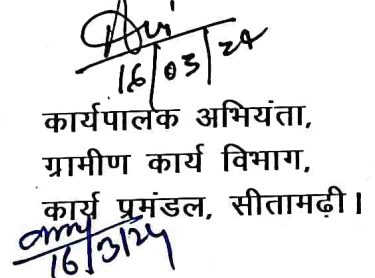 16/03/24
कार्यपालक अभियंता,
ग्रामीण कार्य विभाग,
कार्य प्रमंडल, सीतामढ़ी।
16/3/24